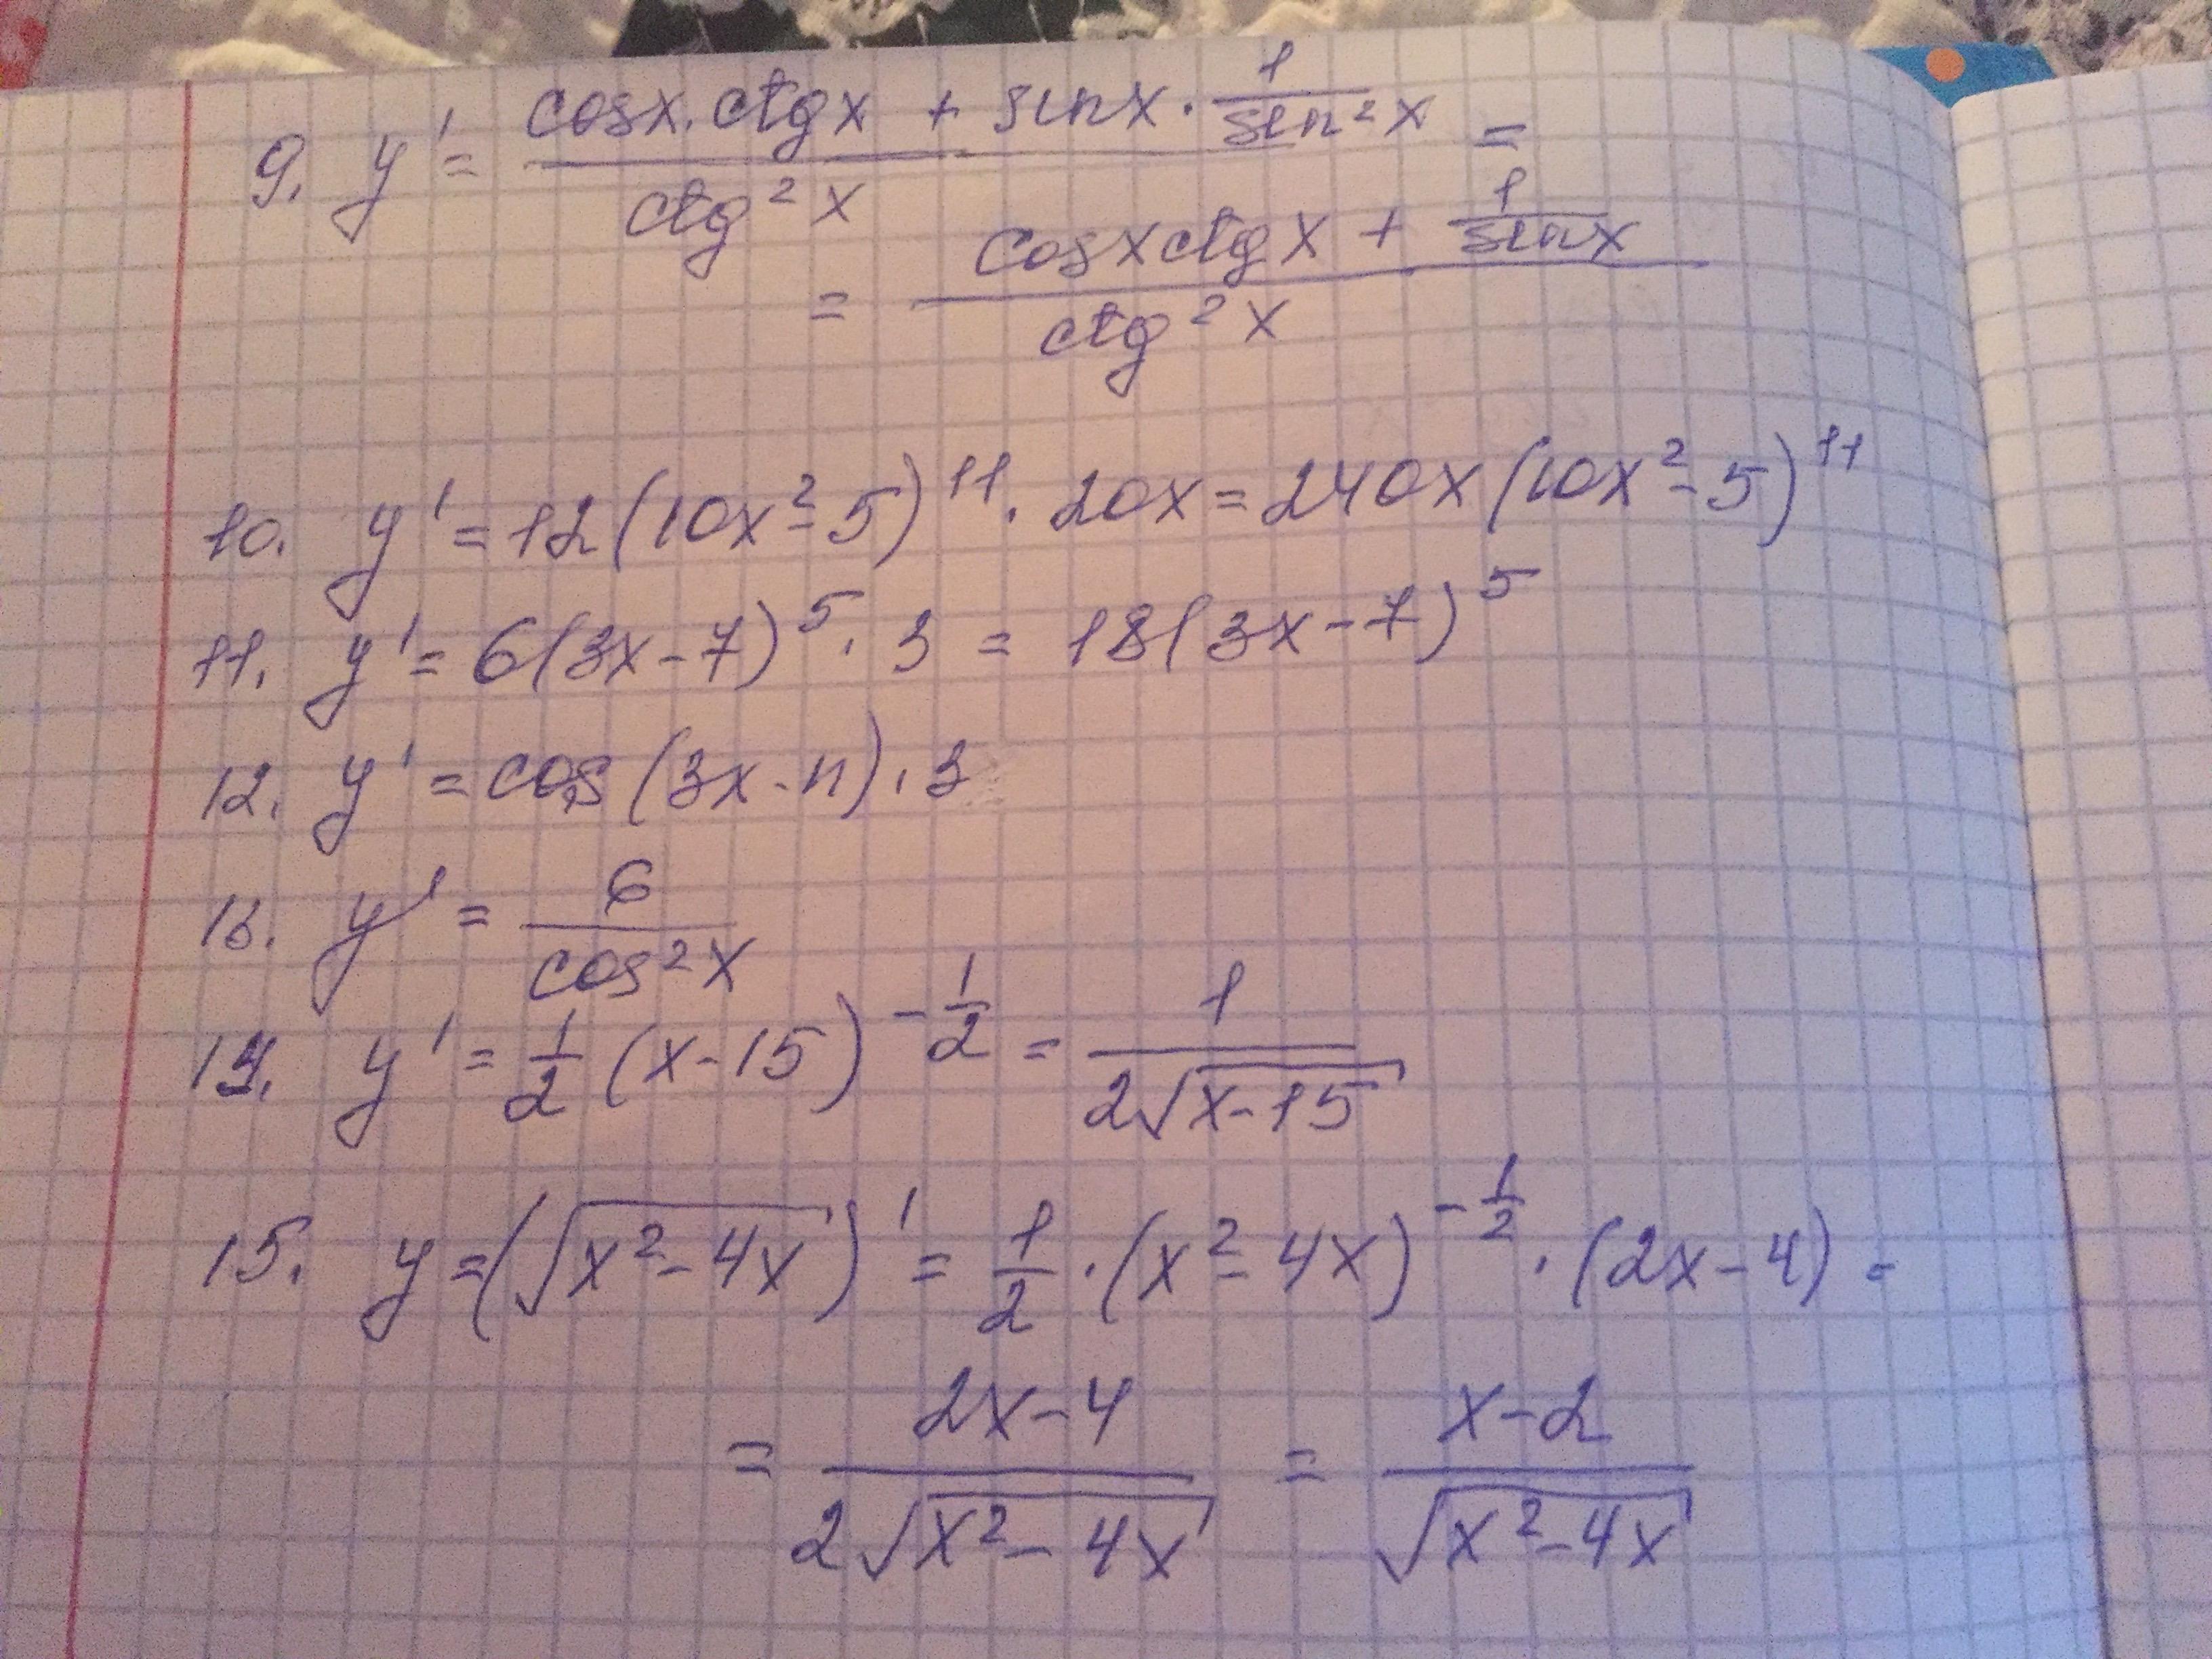 9. y' = (cosx · ctgx + sinx · 1/sin²x) / ctg²x =
= (cosx ctgx + 1/sinx) / ctg²x
10. y' = 12(10x² - 5)¹¹ · 20x = 240x(10x² - 5)¹¹
11. y' = 6(3x - 7)⁵ · 3 = 18(3x - 7)⁵
12. y' = cos(3x - п) · 3
y' = 6 / cos²x
y' = 1/2 (x - 15)^(-1/2) = 1 / (2√(x-15))
15. y = (√(x² - 4x))' = 1/2 · (x² - 4x)^(-1/2) · (2x - 4) =
= (2x - 4) / (2√(x² - 4x)) = (x - 2) / √(x² - 4x)